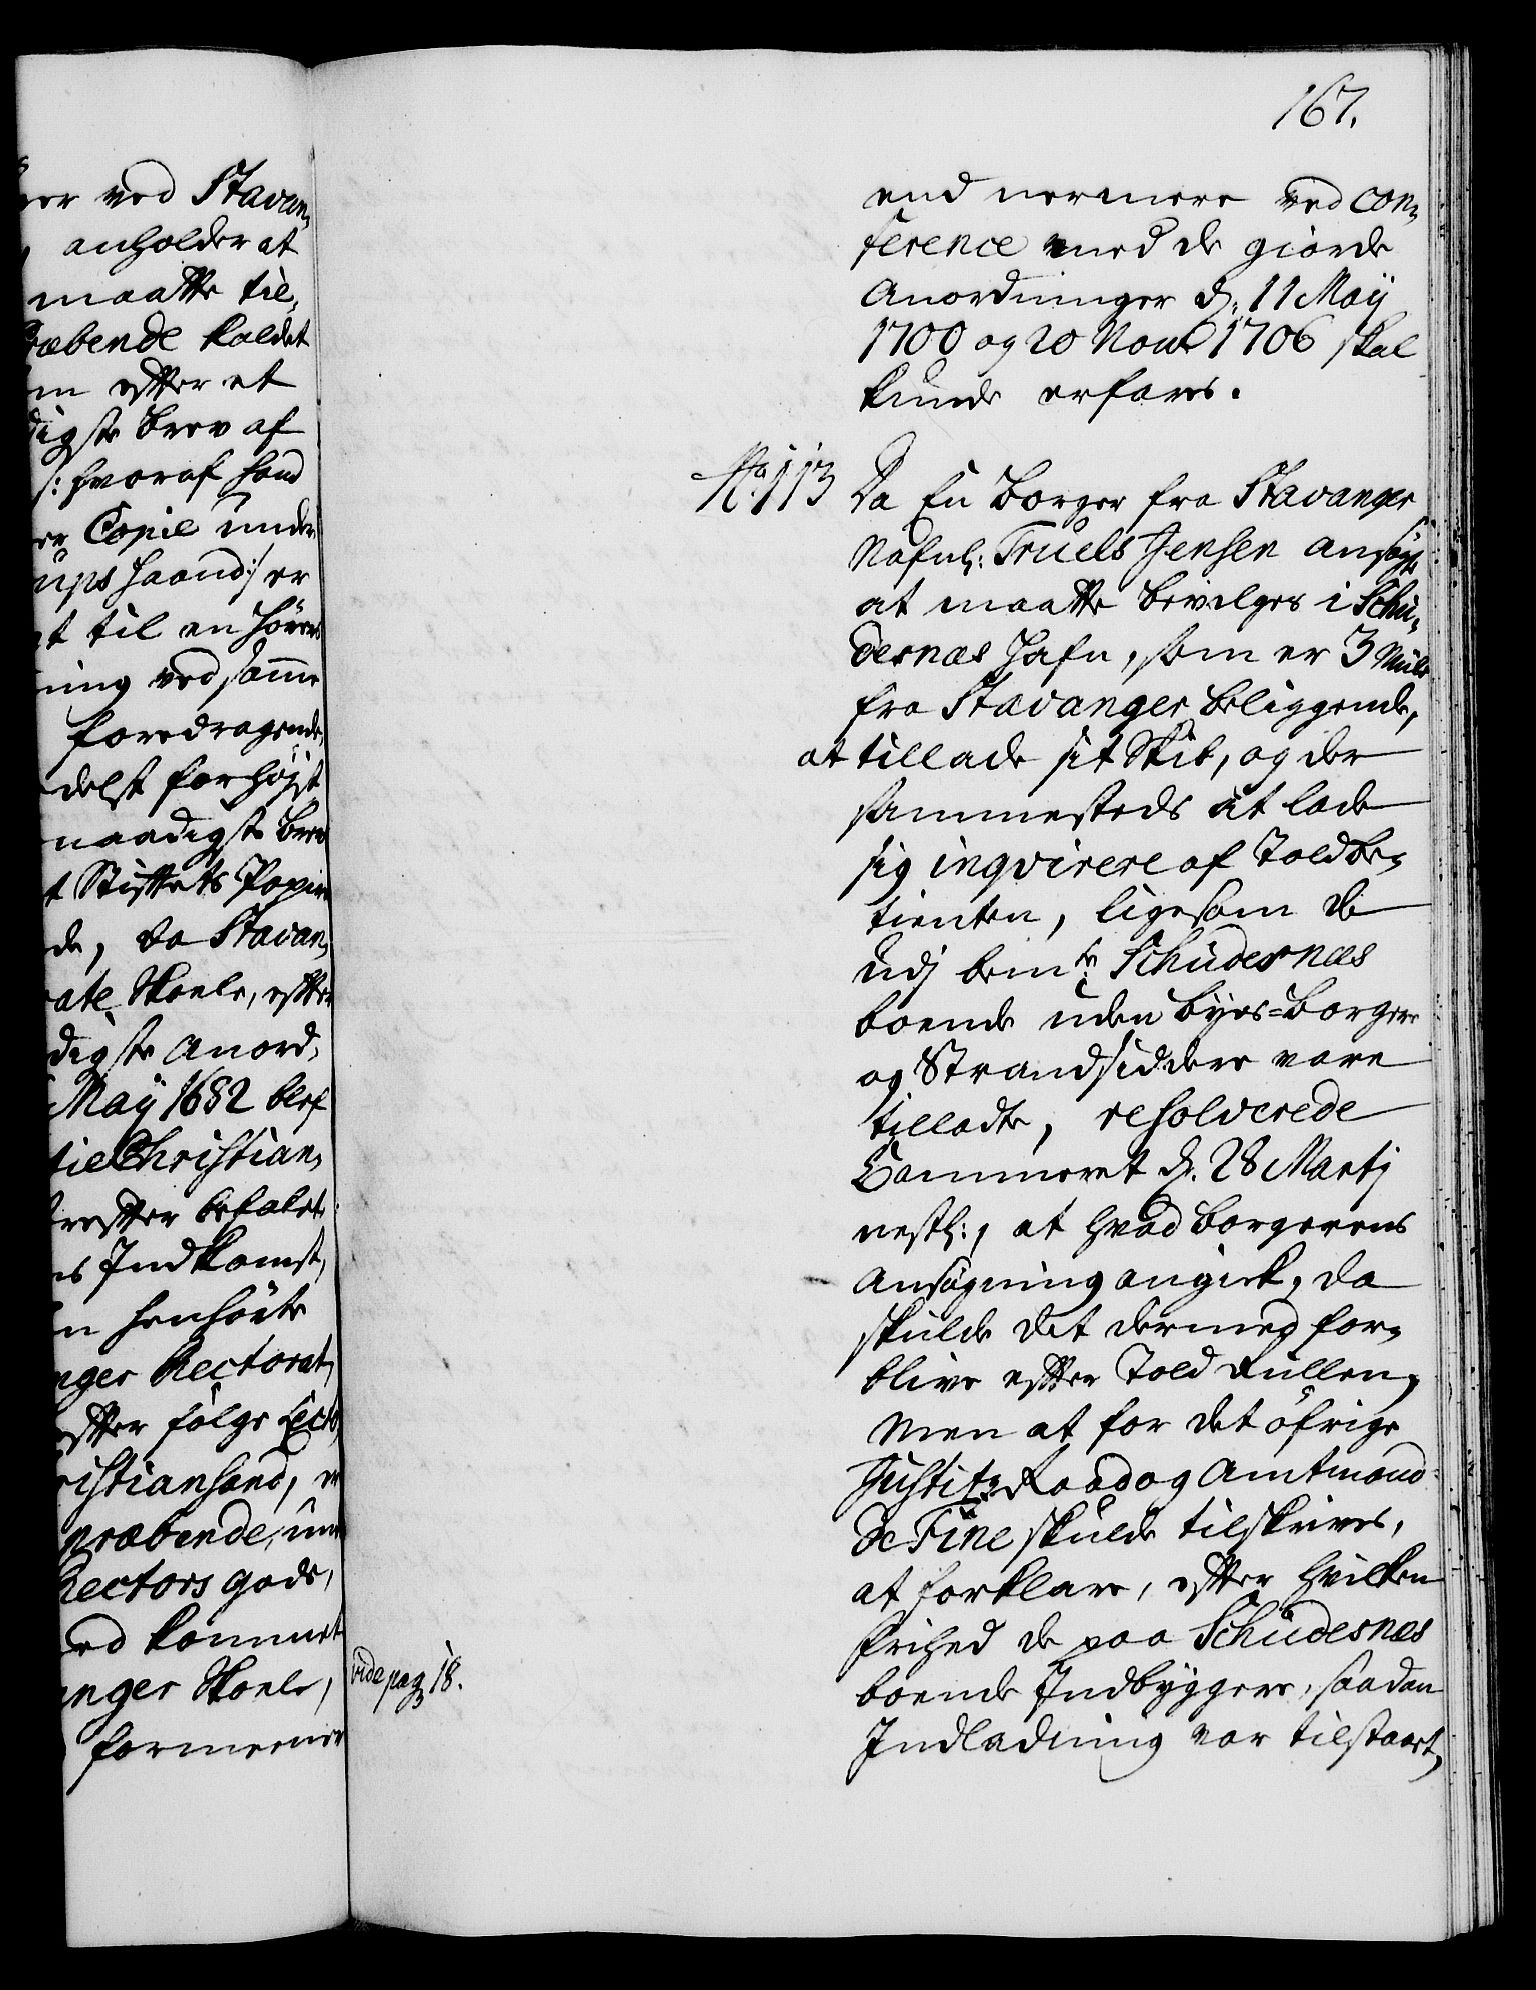 167.
ver ved Stavan,
anholder at
maatte til,
ræbende kaldet
m effter et
digste brev af
/: hvoraf hand
er Copie under
ups haand :/ er
et til en Hörers
ning ved samme
foredragende,
delst for högst
naadigste brev
t Stiftets Papir
de, da Stavan,
ate Skoele, effter
digste Anord,
May 1682 blef
tie Christian,
reffter befalet
s Indkomst,
n henhörte
nger Rectorat,
effter fölge Lecto
ristiansand, er
præbende, un
Rectors gode,
ed kommet
anger Skoele,
formeener
vide pag 18.
end nermere ved con,
ference med de giorde
Anordninger d. 11 May
1700 og 20 Novr 1706 skal
kunde erfares.
No. 113
Da En Borger fra Stavanger
Nafnl: Truels Jensen ansögte
at maatte bevilges i Schu,
desnæs Hafn, som er 3 Miile
fra Stavanger beliggende,
at tillade sit Skib, og der
sammesteds at lade
sig inqvirere af Toldbe,
tienten, ligesom de
udj bemte Schudesnæs
boende uden byes-Borgere
og Strandsiddere vare
tilladte, resolverede
Cammeret d. 28 Martj
nestl:, at hvad borgerens
Ansögning angick, da
skulde det dermed for,
blive effter Told Rullen,
Men at for det öfrige
Justitz Raad og Amtmand
de Fine skulde tilskrives,
at forklare, effter hvilken
frihed de paa Schudesnæs
boende Indbyggere, saadan
Indladning var tilstaaet,